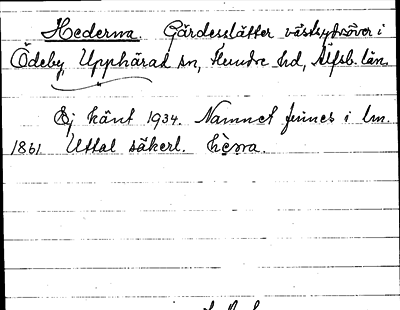 Hederna. Gärdesslåtter västsydväst över i
Ödeby, Upphärad sn, Flundre hd, Älfsb. län.
Ej känt 1934. Namnet finnes i lm.
1861 Uttal säkerl. hèṛṇa.